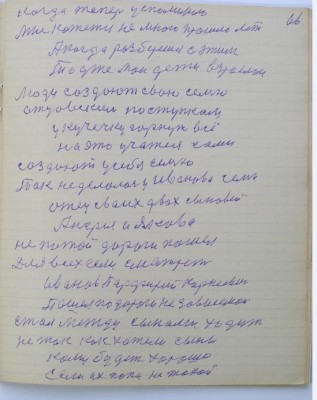 когда тепер успомиnaю
66
Мне кажется не много прошло лет
А когда разбереш с этим
То уже мои дети взрослы
Люди создают свою семью
отцовским поступкам
у кучечку горнут всё
на это учатся сами
создают у себя семью
Так не делалось у Иванова семь
отец своих двох сыновей
Андрея и Якова
не по той дороги пошли
Для всех сели смотреть
Иванов Парфирий Карнеевич
Пошли по дороги не зависимой
стал между сынами ходит
не так как хотели сыны
Кому будет хорошо
Если их папа не такой